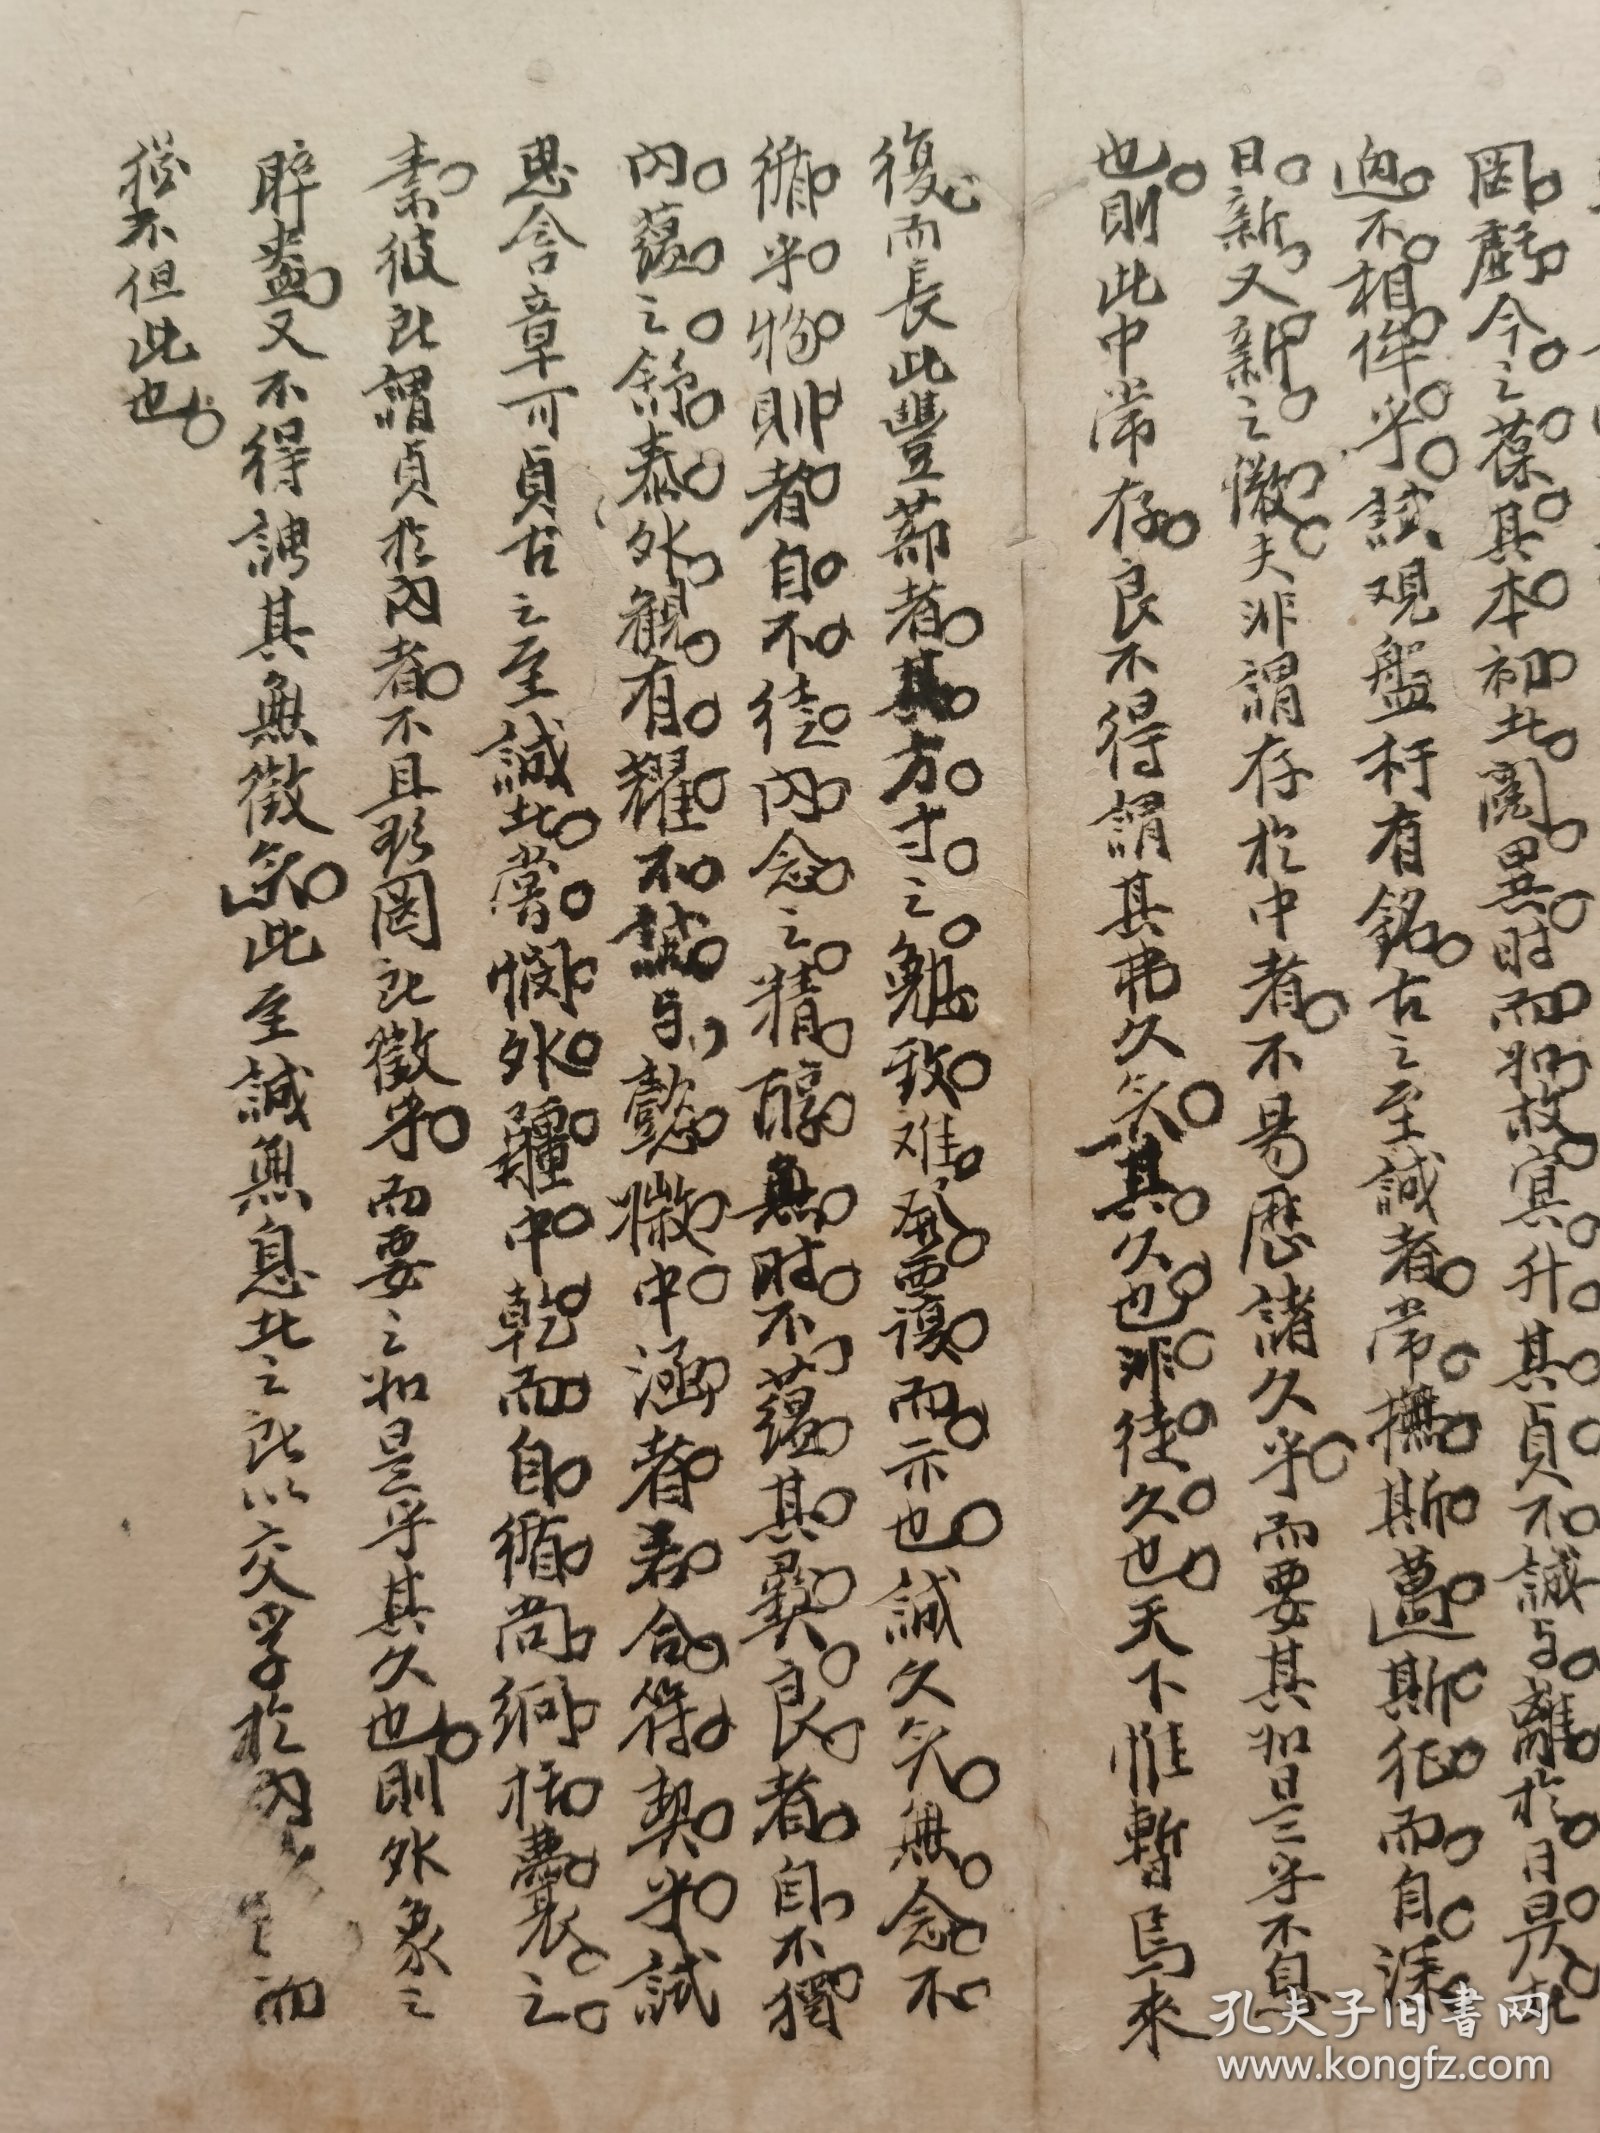 罔虧今之葆其本初此闋異時而如故冥升其貞不誠与離於日昃
迥不相侔乎試观盤杅有銘古之至誠者常撫斯邁斯征而自深
日新又新之懒夫非謂存於中者不易歷諸久乎而要其如是乎不息
也則此中常存良不得謂其弗久矣其久也非徒久也天下惟暫焉來
復而長此豐蔀者其方寸之勉致难發要謖而示也誠久矣無念不
循乎物則者自不徒内念之精醇無时不蘊其彛良者自不獨
内蘊之舒泰外觀有耀不誠与懿懒中涵者若合符契乎試
思含章可貞古之至誠此嘗惘外疆中乾而自循尚絅括囊之
素彼所謂貞於内者不且彰罔所徵乎而要之如是乎其久也則外象之
睟盎又不得謂其無徵矣此至誠無息此之所以交孚於内 而
從不但此也
孔夫子旧书网
www.kongfz.com